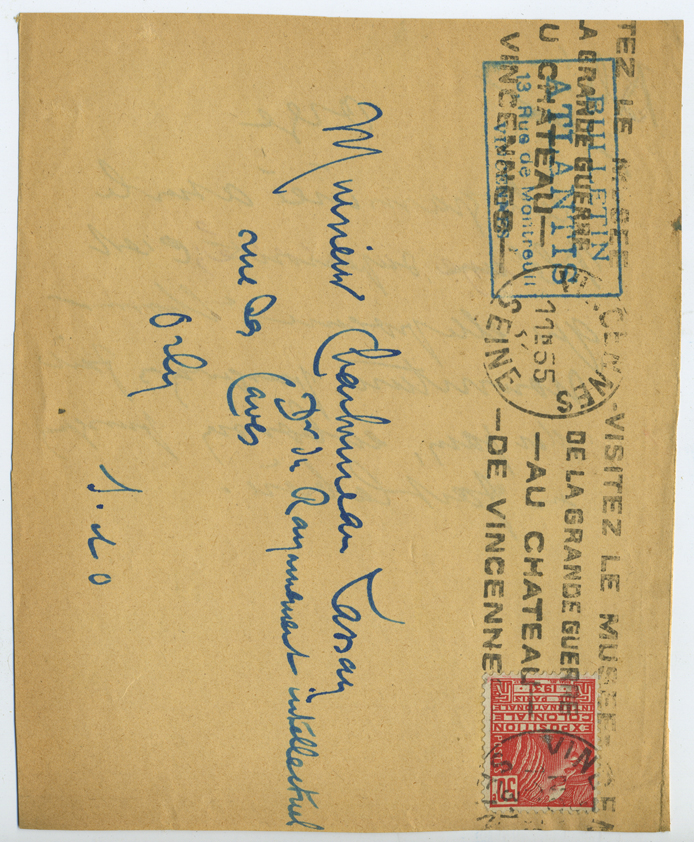 TEZ LE MUSEE
LA GRANDE GUERRE
U CHATEAU—
VINCENNES—
BULLETIN
ATLANTIS
13 Rue de Montreuil
VINCENNES
VINCENNES
11 35
SEINE
—VISITEZ LE MUSEE—
DE LA GRANDE GUERRE
—AU CHATEAU—
—DE VINCENNE
EXPOSITION
COLONIALE
INTERNATIONALE
PARIS
1931
POSTES
50c
VINCE
Monsieur Charbonneau Lassay
Dr du Rayonnement intellectuel
rue des Caves
Orly
S. et O